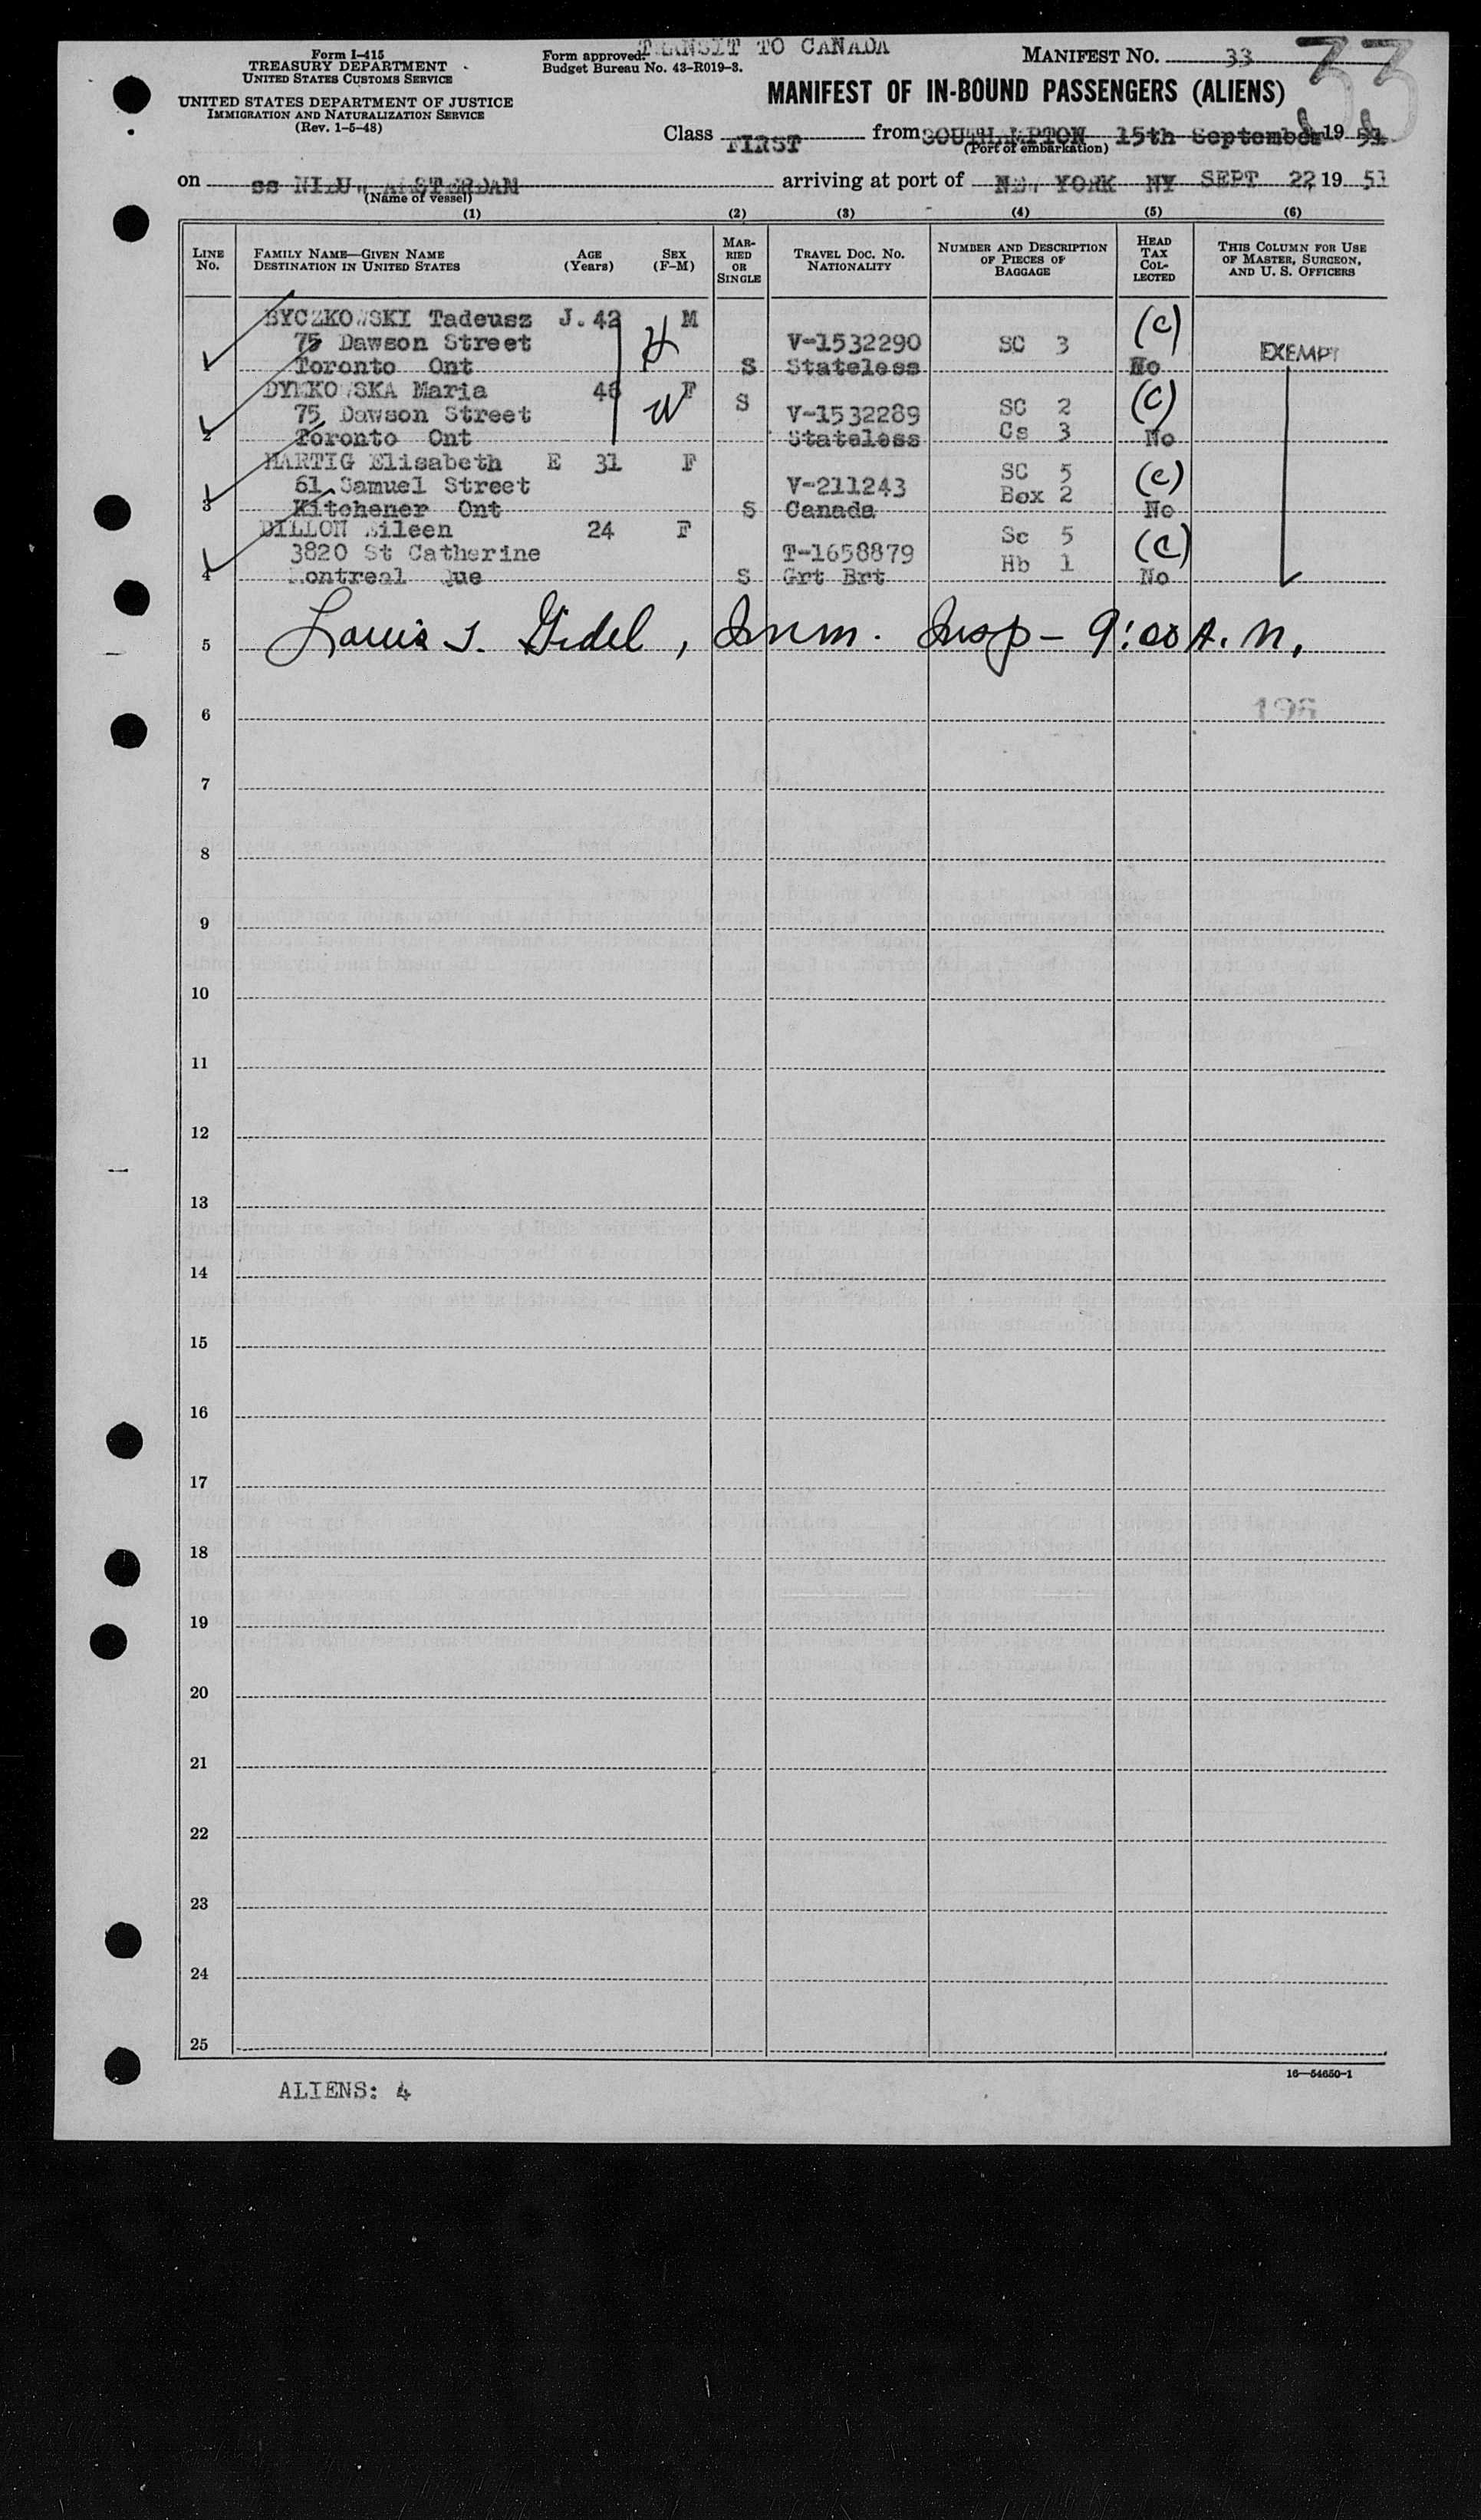 TRANSIT TO CANADA
Form I-415
TREASURY DEPARTMENT
UNITED STATES CUSTOMS SERVICE
UNITED STATES DEPARTMENT OF JUSTICE
IMMIGRATION AND NATURALIZATION SERVICE
(Rev. 1-5-48)
Form approved.
Budget Bureau No. 43-R019-3.
MANIFEST No. 33
33
MANIFEST OF IN-BOUND PASSENGERS (ALIENS)
Class FIRST from SOUTHAMPTON 15th September 19 51
(Port of embarkation)
on ss NIEUW AMSTERDAM arriving at port of NEW YORK NY SEPT 22 19 51
(Name of vessel)
(1) (2) (3) (4) (5) (6)
LINE No.
FAMILY NAME—GIVEN NAME
DESTINATION IN UNITED STATES
AGE (Years)
SEX (F-M)
MARRIED OR SINGLE
TRAVEL DOC. No. NATIONALITY
NUMBER AND DESCRIPTION OF PIECES OF BAGGAGE
HEAD TAX COLLECTED
THIS COLUMN FOR USE OF MASTER, SURGEON, AND U. S. OFFICERS
BYCZKOWSKI Tadeusz J. 42 M (c)
75 Dawson Street V-1532290 SC 3 EXEMPT
1 Toronto Ont S Stateless No
DYKKOWSKA Maria 46 F S SC 2 (c)
75 Dawson Street V-1532289 Cs 3
2 Toronto Ont Stateless No
HARTIG Elisabeth E 31 F SC 5 (c)
61 Samuel Street V-211243 Box 2
3 Kitchener Ont S Canada No
DILLON Eileen 24 F Sc 5 (c)
3820 St Catherine T-1658879 Hb 1
4 Montreal Que S Grt Brt No
5 Louis J. Gidel, Imm. Insp - 9:00 A.M.
6
7
8
9
10
11
12
13
14
15
16
17
18
19
20
21
22
23
24
25
16—54650-1
ALIENS: 4